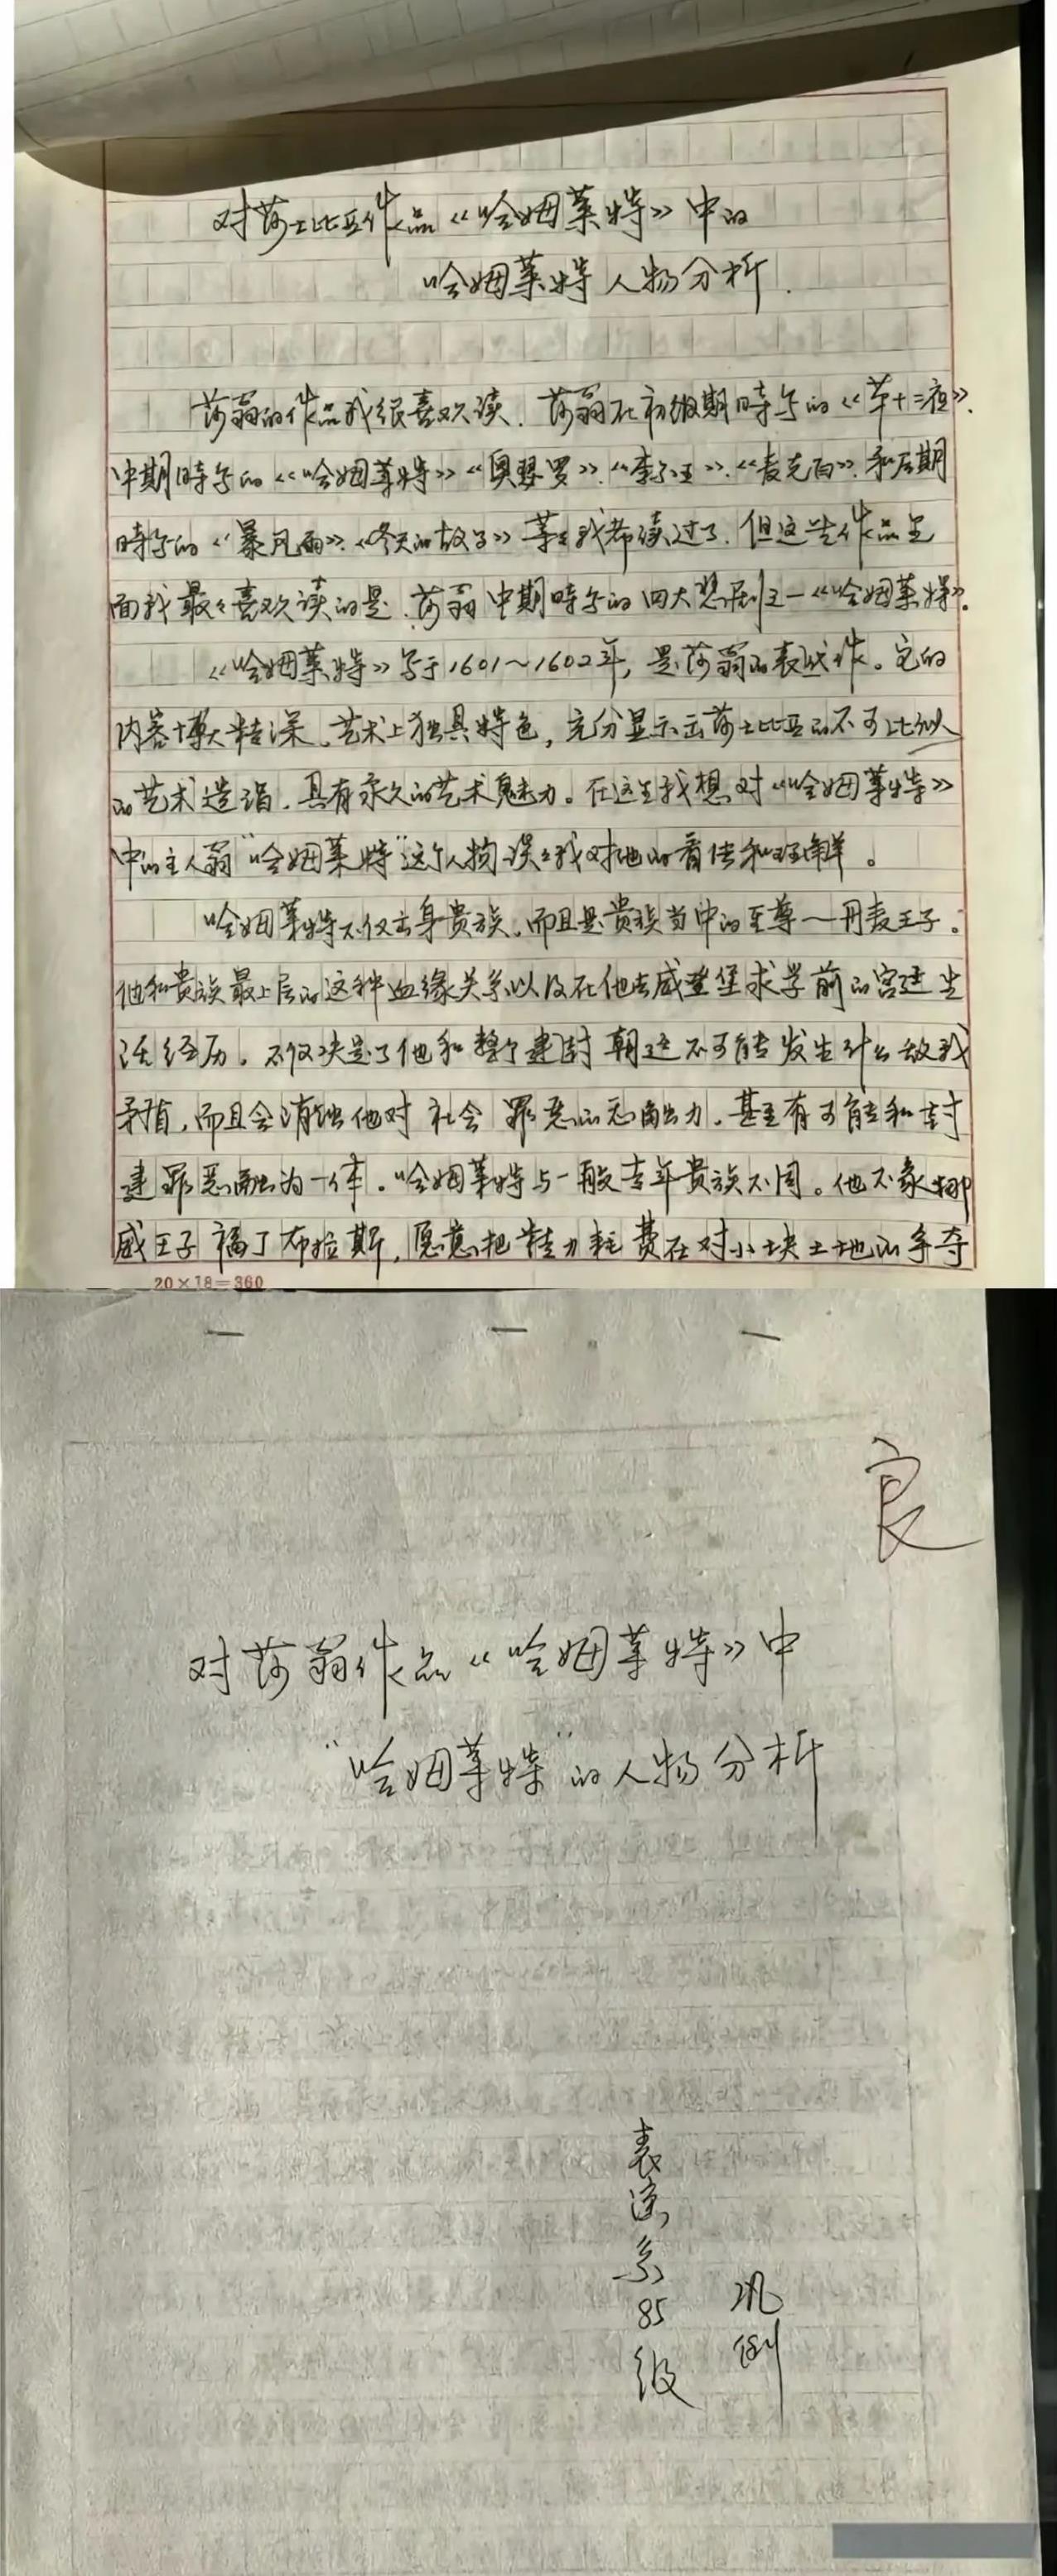 对莎士比亚作品《哈姆莱特》中的
哈姆莱特人物分析.
莎翁的作品我很喜欢读.莎翁在初级期時写的《第十二夜》.
中期時写的《哈姆莱特》《奥瑟罗》.《李尔王》.《麦克白》.和后期
時写的《暴风雨》.《冬天的故事》等我都读过了.但这些作品里
面我最喜欢读的是.莎翁中期時写的四大悲剧之一《哈姆莱特》.
《哈姆莱特》写于1601~1602年,是莎翁的表代作。它的
内容博大精深.艺术上独具特色,充分显示出莎士比亚的不可比似
的艺术造诣.具有永久的艺术魅力。在这里我想对《哈姆莱特》
中的主人翁"哈姆莱特"这个人物谈谈我对他的看法和理解。
哈姆莱特不仅出身贵族.而且是贵族当中的至尊—丹麦王子。
他和贵族最上层的这种血缘关系以及在他去威登堡求学前的宫廷生
活经历.不仅决定了他和整个建封朝廷不可能发生什么敌我
矛盾,而且会消蚀他对社会罪恶的忍耐力.甚至有可能和封
建罪恶融为一体.哈姆莱特与一般青年贵族不同。他不象挪
威王子福丁布拉斯,愿意把精力耗费在对小块土地的争夺
20×18=360
良
对莎翁作品《哈姆莱特》中
"哈姆莱特"的人物分析
表演系85级
巩俐